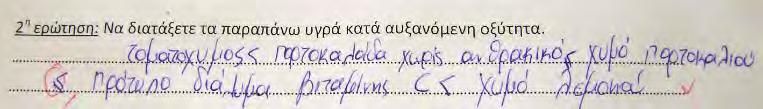 2η ερώτηση: Να διατάξετε τα παραπάνω υγρά κατά αυξανόμενη οξύτητα.
τοματοχυμος< πορτοκαλαδα χωρίς ανθρακικό< χυμό πορτοκαλιού
< πρότυπο διάλυμα βιταμίνης C< χυμό λεμονιού